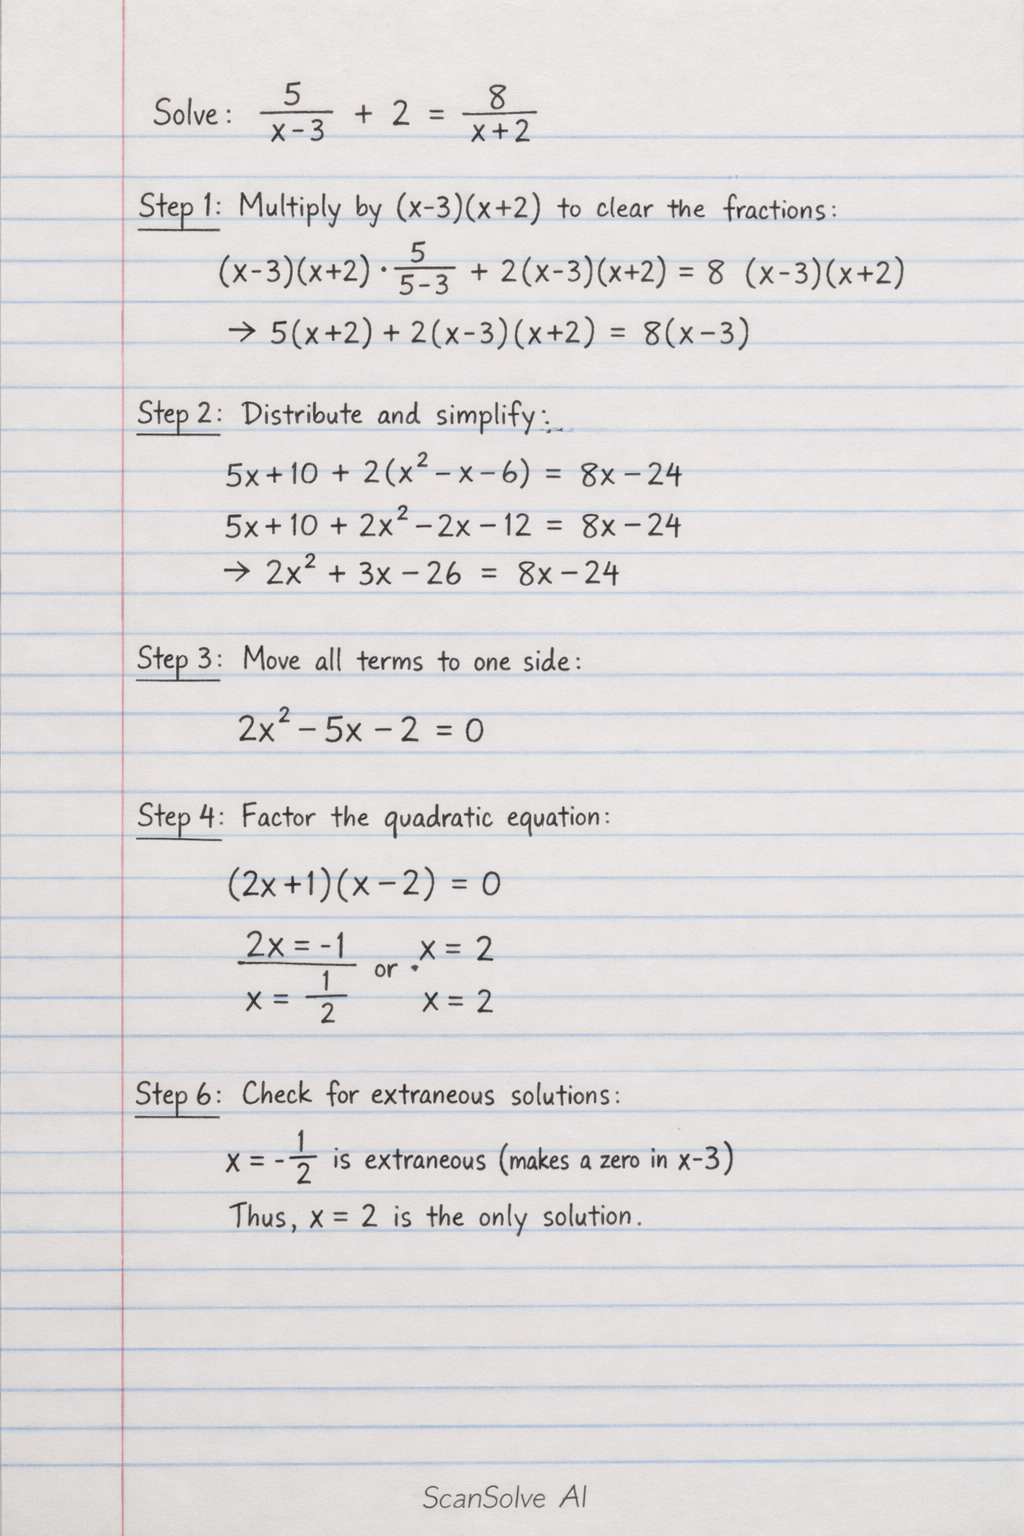 Solve: 5/(x-3) + 2 = 8/(x+2)
Step 1: Multiply by (x-3)(x+2) to clear the fractions:
(x-3)(x+2) · 5/(5-3) + 2(x-3)(x+2) = 8 (x-3)(x+2)
→ 5(x+2) + 2(x-3)(x+2) = 8(x-3)
Step 2: Distribute and simplify:
5x+10 + 2(x²-x-6) = 8x-24
5x+10 + 2x²-2x-12 = 8x-24
→ 2x² + 3x-26 = 8x-24
Step 3: Move all terms to one side:
2x²-5x-2 = 0
Step 4: Factor the quadratic equation:
(2x+1)(x-2) = 0
2x = -1 or x = 2
x = 1/2 x = 2
Step 6: Check for extraneous solutions:
x = -1/2 is extraneous (makes a zero in x-3)
Thus, x = 2 is the only solution.
ScanSolve AI